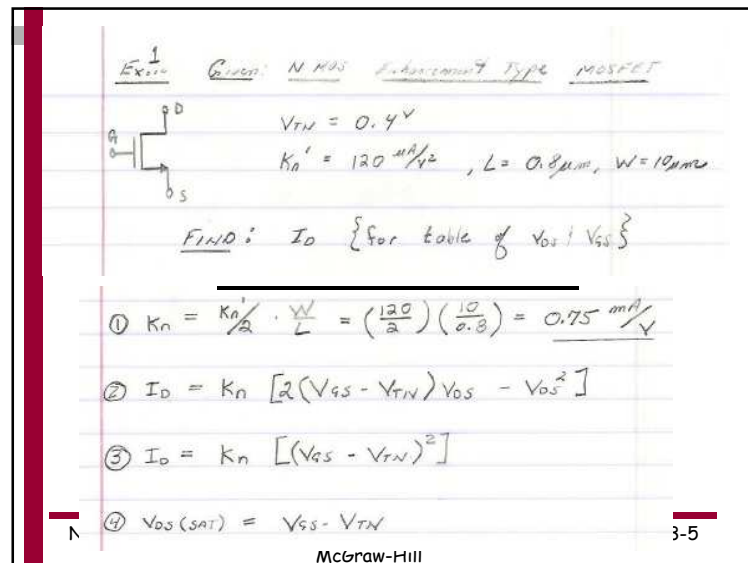 Ex... 1 Given: N MOS Enhancement Type MOSFET
D
G
S
VTN = 0.4 V
Kn' = 120 μA/V², L = 0.8μm, W = 10μm
FIND: ID {for table of VDS ; VGS}
① Kn = Kn'/2 · W/L = (120/2)(10/0.8) = 0.75 mA/V
② ID = Kn [2(VGS - VTN)VDS - VDS²]
③ ID = Kn [(VGS - VTN)²]
④ VDS(SAT) = VGS - VTN
N
3-5
McGraw-Hill